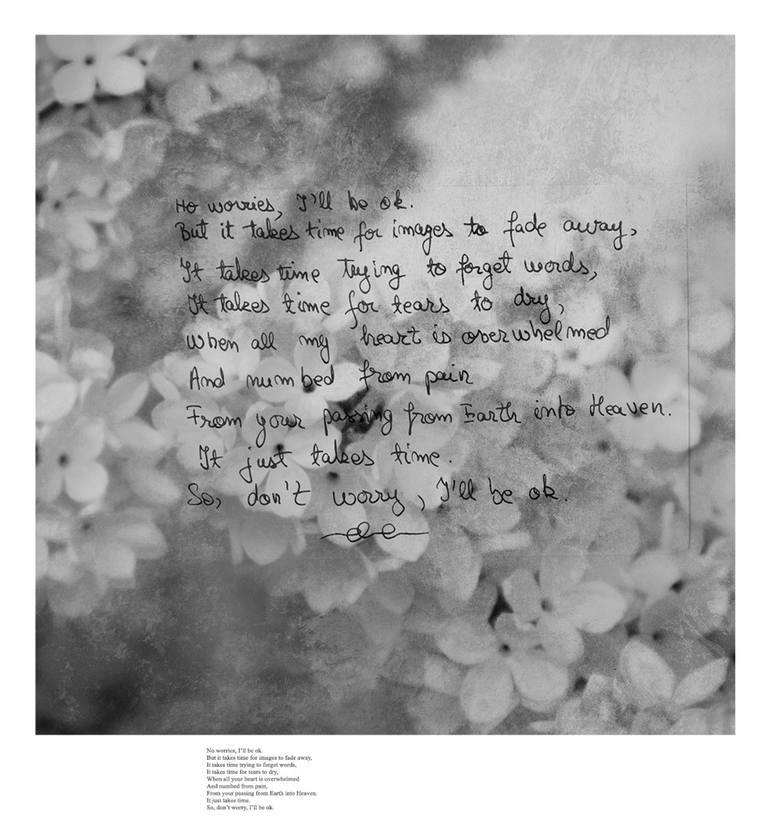 No worries, I'll be ok.
But it takes time for images to fade away,
It takes time trying to forget words,
It takes time for tears to dry,
when all my heart is overwhelmed
And numbed from pain
From your passing from Earth into Heaven.
It just takes time.
So, don't worry, I'll be ok.
No worries, I'll be ok.
But it takes time for images to fade away,
It takes time trying to forget words,
It takes time for tears to dry,
When all your heart is overwhelmed
And numbed from pain,
From your passing from Earth into Heaven.
It just takes time.
So, don't worry, I'll be ok.